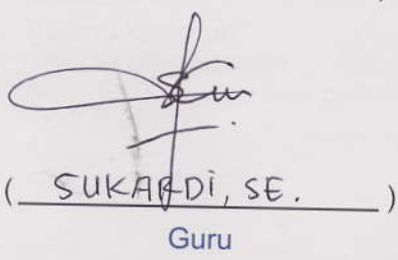 ( SUKARDI, SE. )
Guru